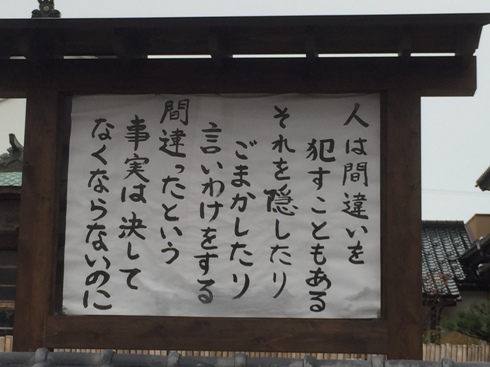 人は間違いを
犯すこともある
それを隠したり
ごまかしたり
言いわけをする
間違ったという
事実は決して
なくならないのに